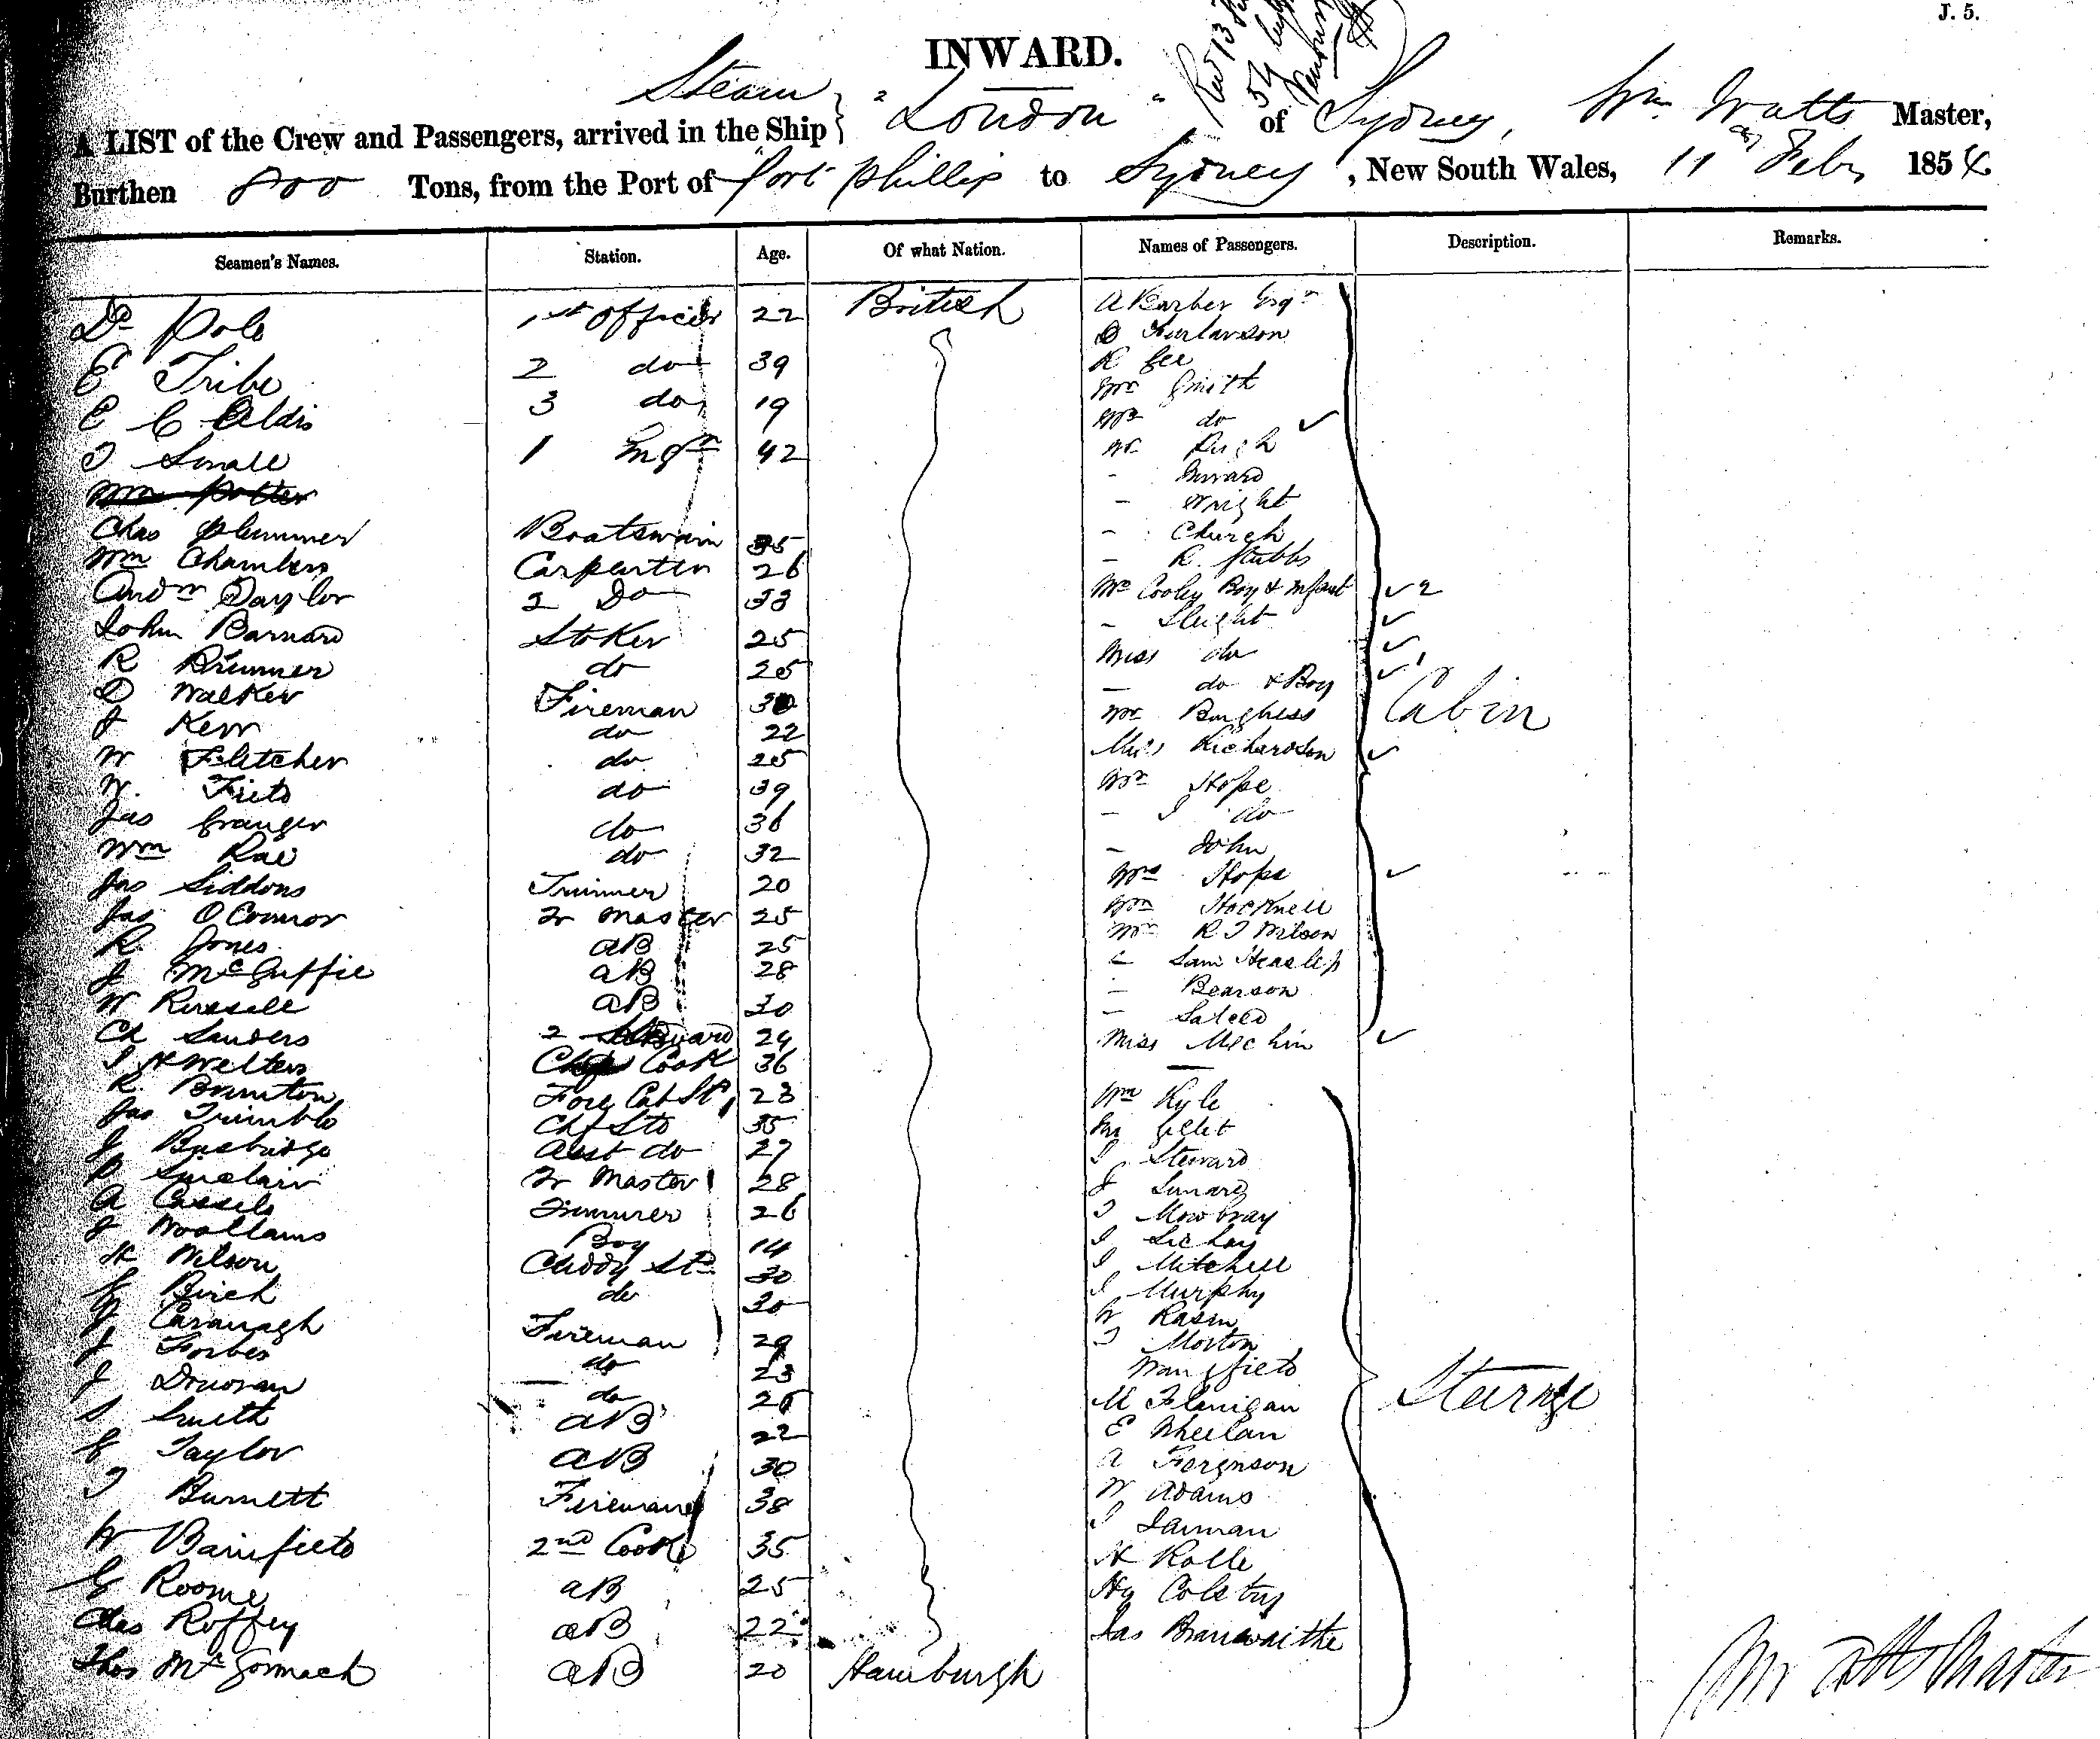 J. 5.
INWARD.
Steam
A LIST of the Crew and Passengers, arrived in the Ship } "London" of Sydney, Wm Watts Master,
Burthen 800 Tons, from the Port of Port Phillip to Sydney, New South Wales, 11 Feby 1854.
Seamen's Names. Station. Age. Of what Nation. Names of Passengers. Description. Remarks.
Pole 1st Officer 22 British A Barber Esqr
E Tribe 2 do 39
E C Aldis 3 do 19
T Small 1 Engr 42
Wm Potter
Chas Plummer Boatswain 35
Wm Chambers Carpenter 26
Andw Taylor 2 Do 33
John Barnard Stoker 25
R Brimmer do 25
D Walker Fireman 30
J Kerr do 22
W Fletcher do 25
W. Field do 39
Jas Granger do 36
Wm Rae do 32
Jas Siddons Trimmer 20
Jas O Connor Qr Master 25
R. Jones AB 25
J McGuffie AB 28
W Russell AB 30
Ch Sanders 2 Steward 24
Welters Cook 36
R. Brunton Fore Cab St 23
Jas Trimble Chf Std 35
J Busbridge Asst do 27
P Sinclair Qr Master 28
A Cassels Trimmer 26
J Woollams Boy 14
H Wilson Cuddy St 30
G Birch do 30
Cavanagh Fireman 29
J Forbes do 23
J Donovan do 26
S Smith AB 22
G Taylor AB 30
T Burnett Fireman 38
W Bamfield 2nd Cook 35
G Roome AB 25
Chas Roffey AB 22
Thos McGormack AB 20 Hamburgh
R Gee
Mr Smith
Mrs do ✓
Mr Pugh
- Wright
- Church
- R. Stubbs
Mrs Cooley Boy & Infant ✓ 2
- Sleight ✓
Miss do ✓
- do & Boy ✓ 1
Mr Burghess
Miss Richardson ✓
Cabin
Mr Hope
- J do
- John
Mrs Hope ✓
Wm Hocknell
Mr R J Wilson
- Sam Heaslip
- Bearson
Miss Mechin ✓
Wm Kyle
J Steward
T Mowbray
J Mitchell
J Murphy
W Rasin
T Morton
Wangfield
M Flanigan
E Wheelan
A Ferguson
W Adams
J Jarman
H Rolle
Jas Branwaithe
Steerage
Wm Watts Master